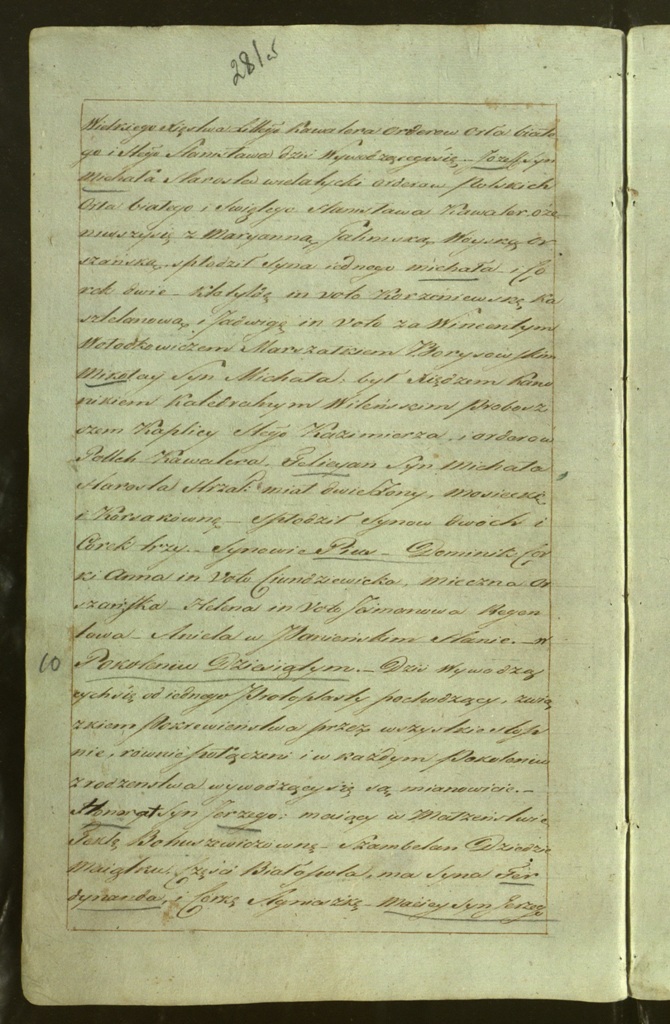 281v
Wielkiego Xięstwa Littgo Kawalera orderow orła białe
go i Stgo Stanisława dziś Wywodzącegosię – Jozeff Syn
Michała Starosta wielatycki orderow Polskich
Orła białego i Swiętego Stanisława Kawaler, oże
niwszysię z Maryanną Galimską Woyską Or
szańską, spłodził Syna iednego Michała i Co
rek dwie – in voto Korzeniewską Ka
sztelanową, i Jadwigę in voto za Wincentym
Wołodkowiczem Marszałkiem Borysowskim
Mikołay Syn Michała, był Xiędzem Kano
nikiem Katedralnym Wileńskim Probosz
szem Kaplicy Stego Kazimierza, i orderow
Polkch Kawalera, Felicyan Syn Michała
Starosta Strzał miał dwie Zony,
i Korsakównę – spłodził Synow dwóch i
Corek trzy. – Synowie Pius – Dominik Cor
ki Anna in Voto Ciundziewicka, Mieczna Or
szańska – Helena in Voto Jamanowa Regen
towa – Aniela w Panieńskim Stanie. – w
10 Pokoleniu Dziesiątym. – Dziś Wywodzą
cychsię od iednego Protoplasty pochodzący, zwią
zkiem Pokrewieństwa przez wszystkie stop
nie, rownie połączeni i w każdym Pokoleniu
z rodzeństwa wywodzący się są mianowicie. –
Syn Jerzego: maiący w Małżeństwie
Teklę Bohuszewiczownę – Szambelan Dziedzic
Maiątku Części Białopola, ma Syna Fer
dynanda, i Corkę Agnieszkę – Maciey Syn Jerzego